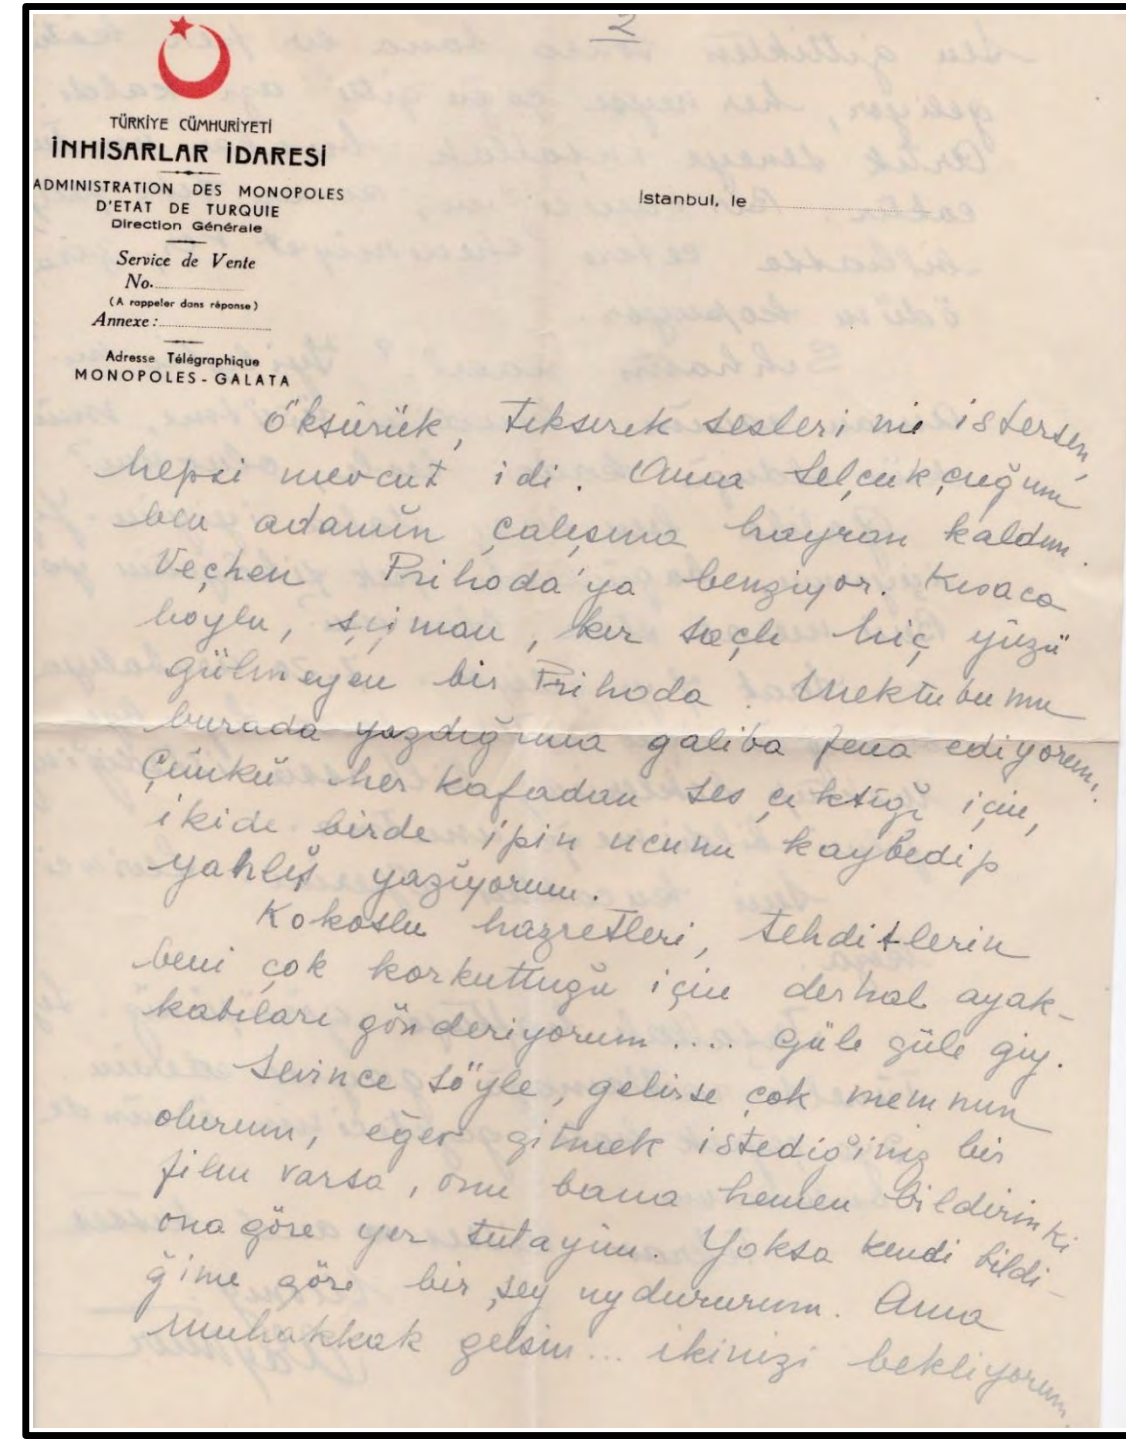 2
TÜRKİYE CÜMHURİYETİ
İNHİSARLAR İDARESİ
ADMINISTRATION DES MONOPOLES
D'ETAT DE TURQUIE
Direction Générale
Service de Vente
No.
(A rappeler dans réponse)
Annexe:
Adresse Télégraphique
MONOPOLES - GALATA
İstanbul, le
Öksürük, tıksırık sesleri mi istersen,
hepsi mevcut idi. Ama Selçukçuğum
ben adamın çalışına hayran kaldım.
Veçhen Prihoda'ya benziyor. Kısaca
boylu, şişman, kır saçlı hiç yüzü
gülmeyen bir Prihoda. Mektubumu
burada yazdığıma galiba fena ediyorum.
Çünkü her kafadan ses çıktığı için,
ikide birde ipin ucunu kaybedip
yanlış yazıyorum.
Kokoslu hazretleri, tehditlerin
beni çok korkuttuğu için derhal ayak-
kabıları gönderiyorum .... Güle güle giy.
Sevince söyle, gelirse çok memnun
olurum, eğer gitmek istediğiniz bir
film varsa, onu bana hemen bildirin ki
ona göre yer tutayım. Yoksa kendi bildi-
ğime göre bir şey uydururum. Ama
muhakkak gelsin... ikinizi bekliyorum.